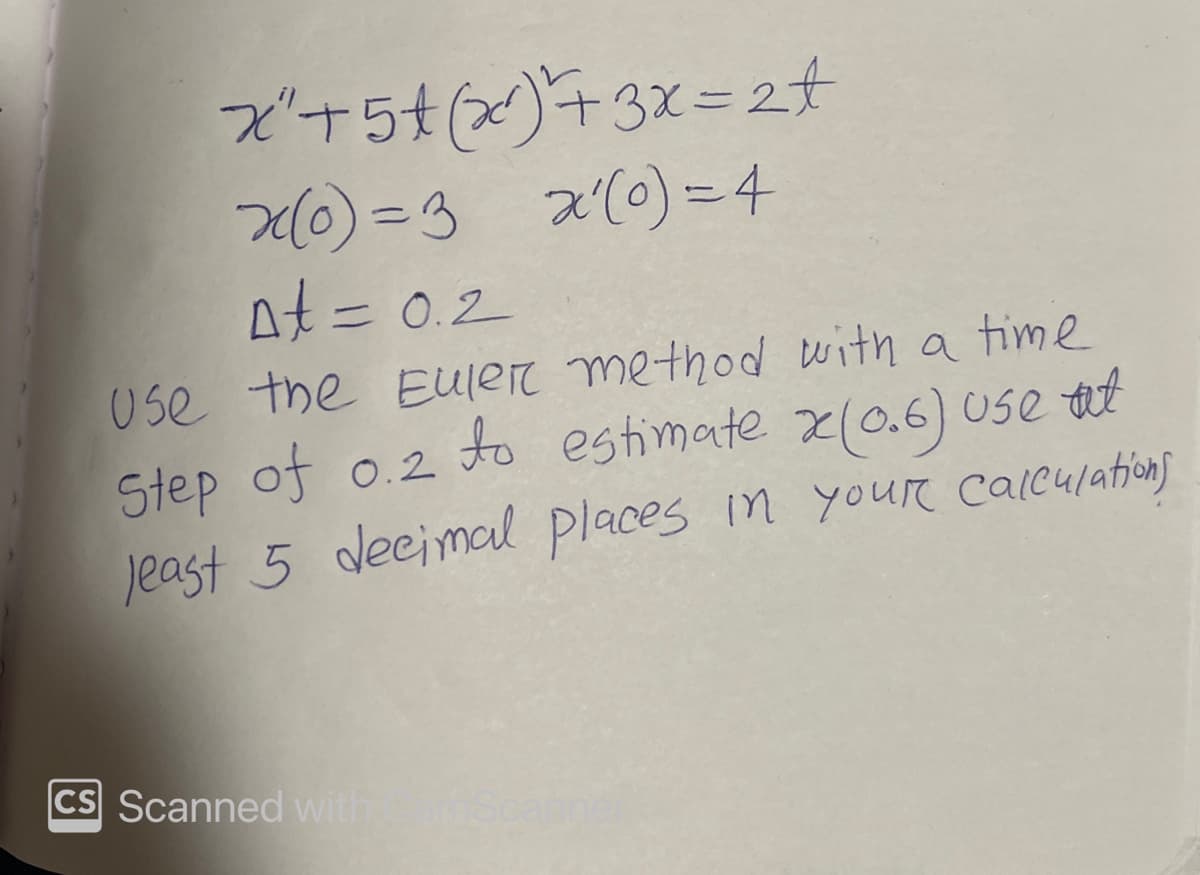 x"+5t(x')²+3x=2t
x(0)=3 x'(0)=4
Δt=0.2
Use the Euler method with a time
step of 0.2 to estimate x(0.6) use at
least 5 decimal places in your calculations
CS Scanned with CamScanner